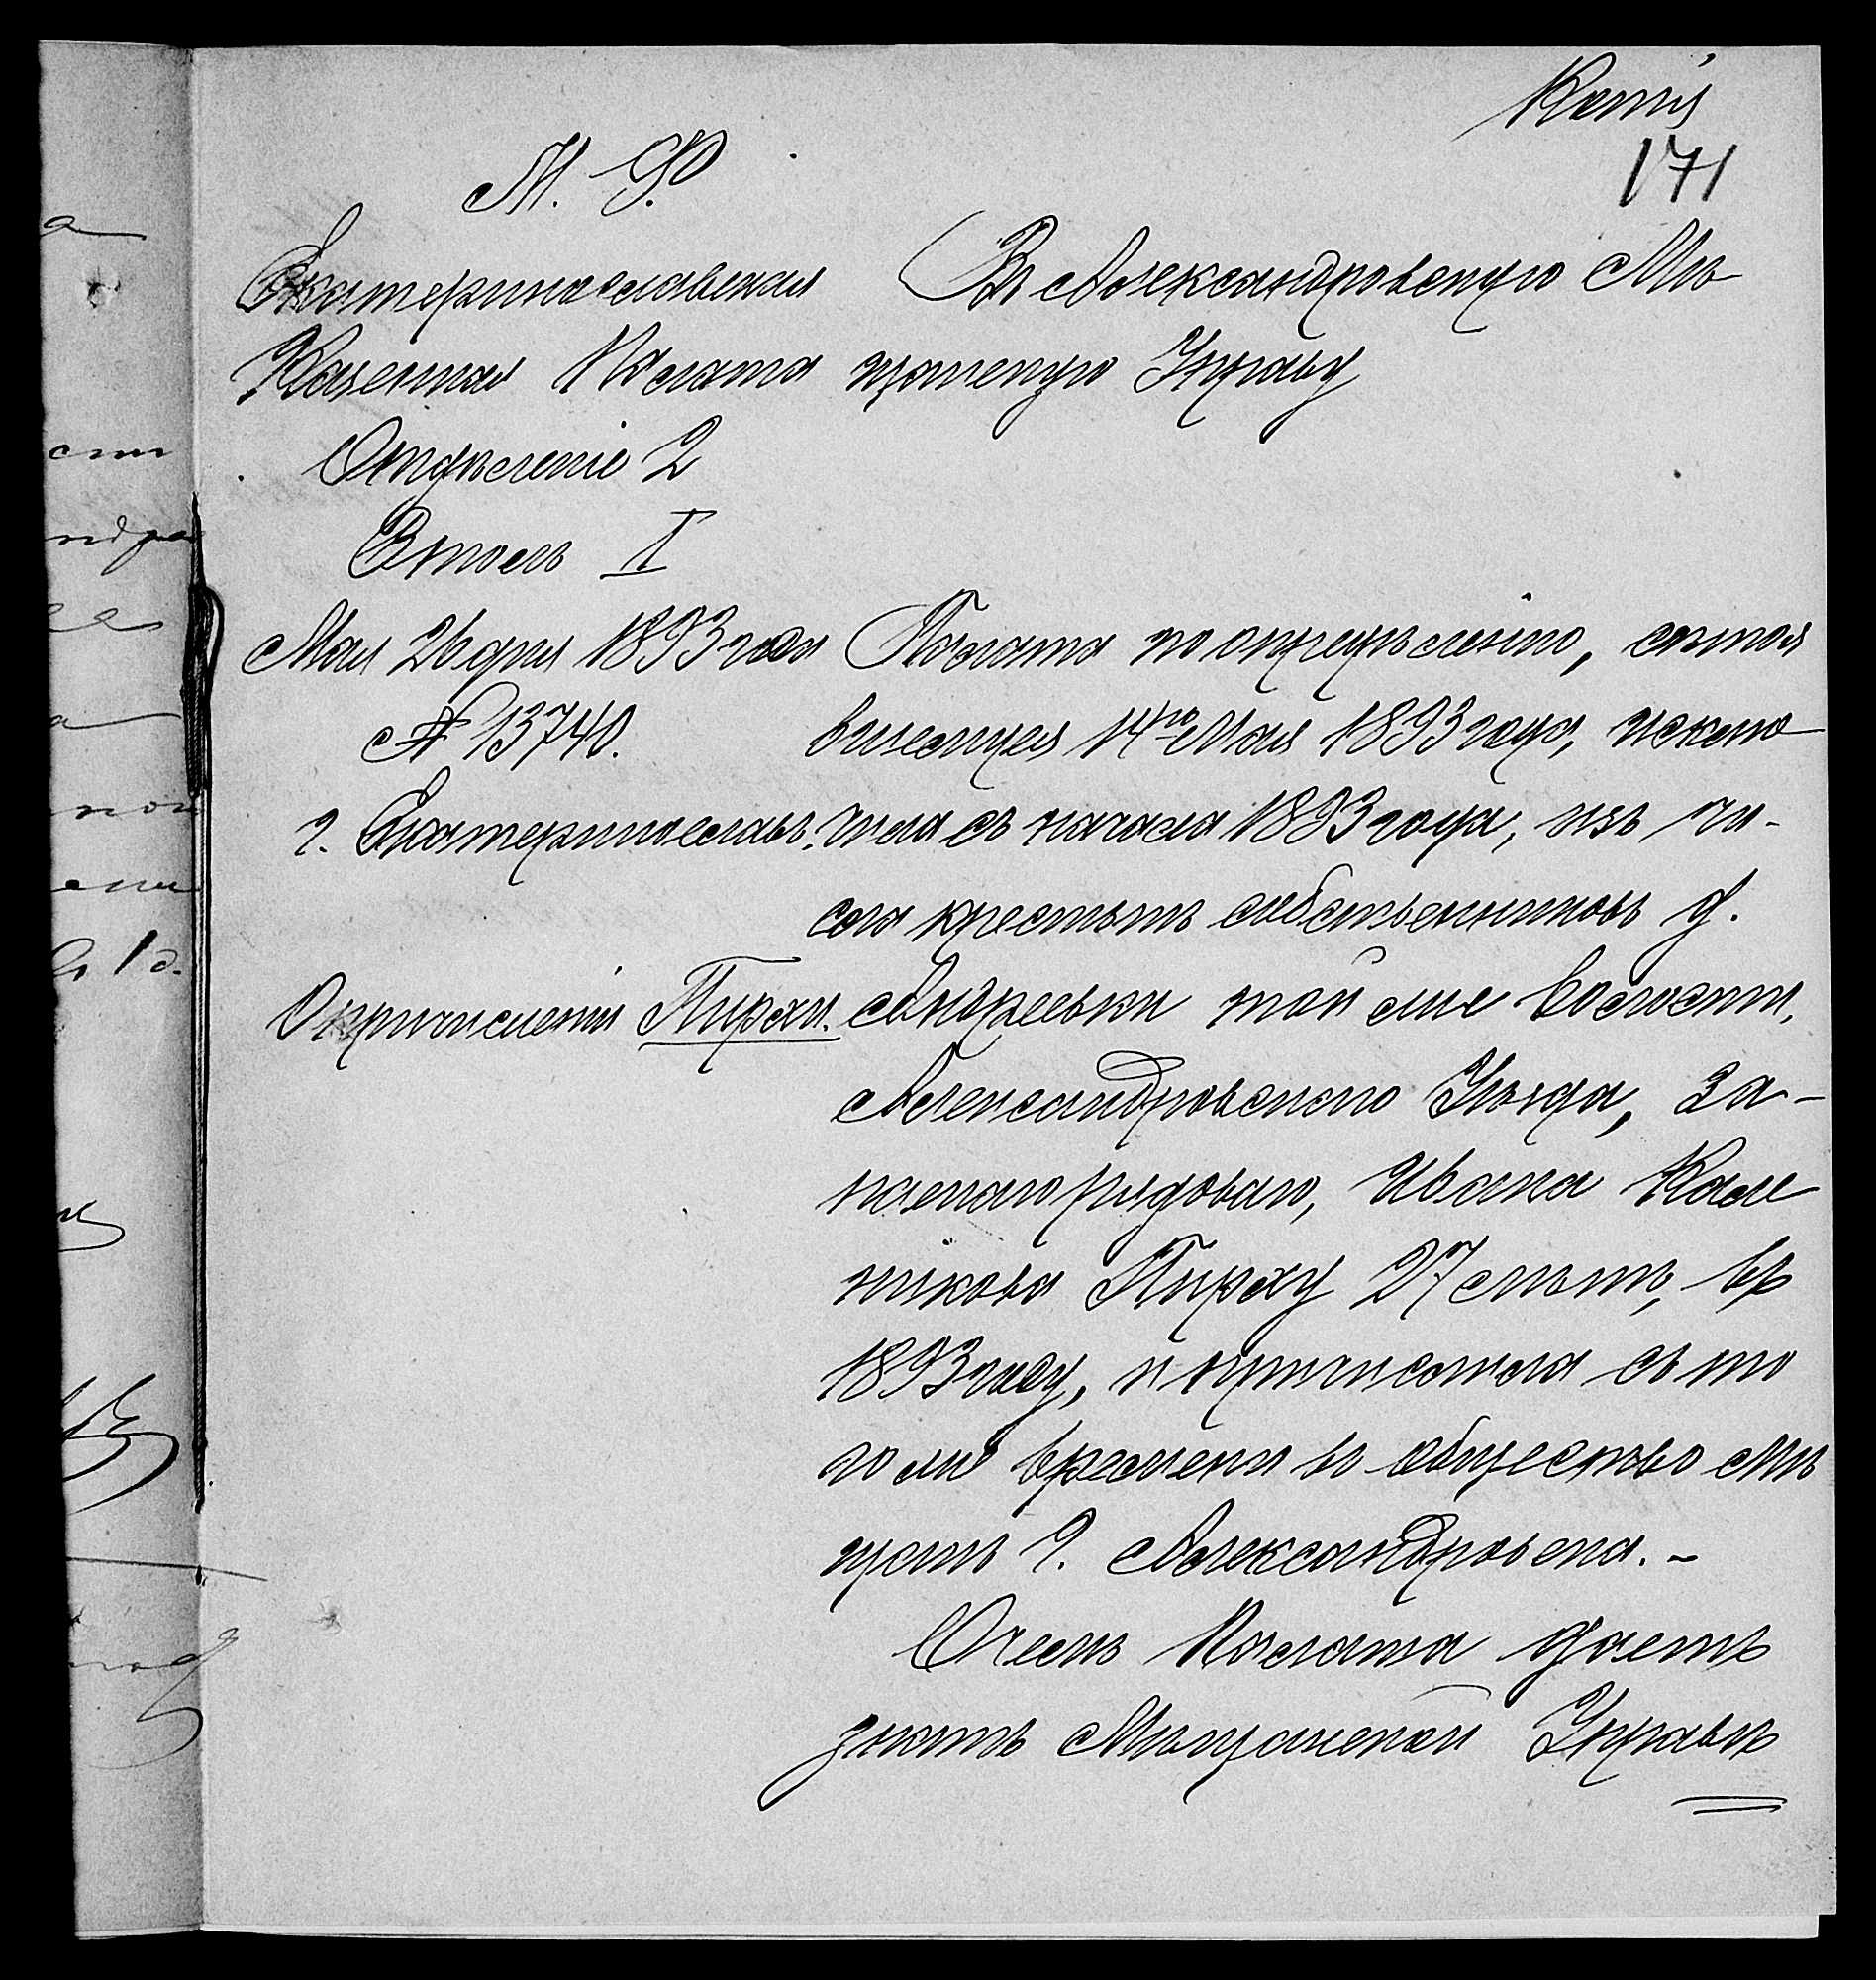 Копія
171
М. Ф.
Екатеринославская
Казенная Палата
Отдѣленіе 2
Столъ I
Мая 26 дня 1893 года
№ 13740.
г. Екатеринославъ.
О причисленіи Пирхи.
Въ Александровскую Мѣ
щанскую Управу
Палата по опредѣленію, состоя
вшемуся 14го Мая 1893 года, исклю
чила съ начала 1893 года, изъ чи-
сла крестьянъ собственниковъ д.
Андреевки той же волости,
Александровскаго Уѣзда, за-
пасного рядоваго, Ивана
Пирху 27 лѣтъ, въ
1893 году, и причислила съ то
го же времени въ общество мѣ
щанъ г. Александровска.-
О чемъ Палата даетъ
знать Мѣщанской Управѣ